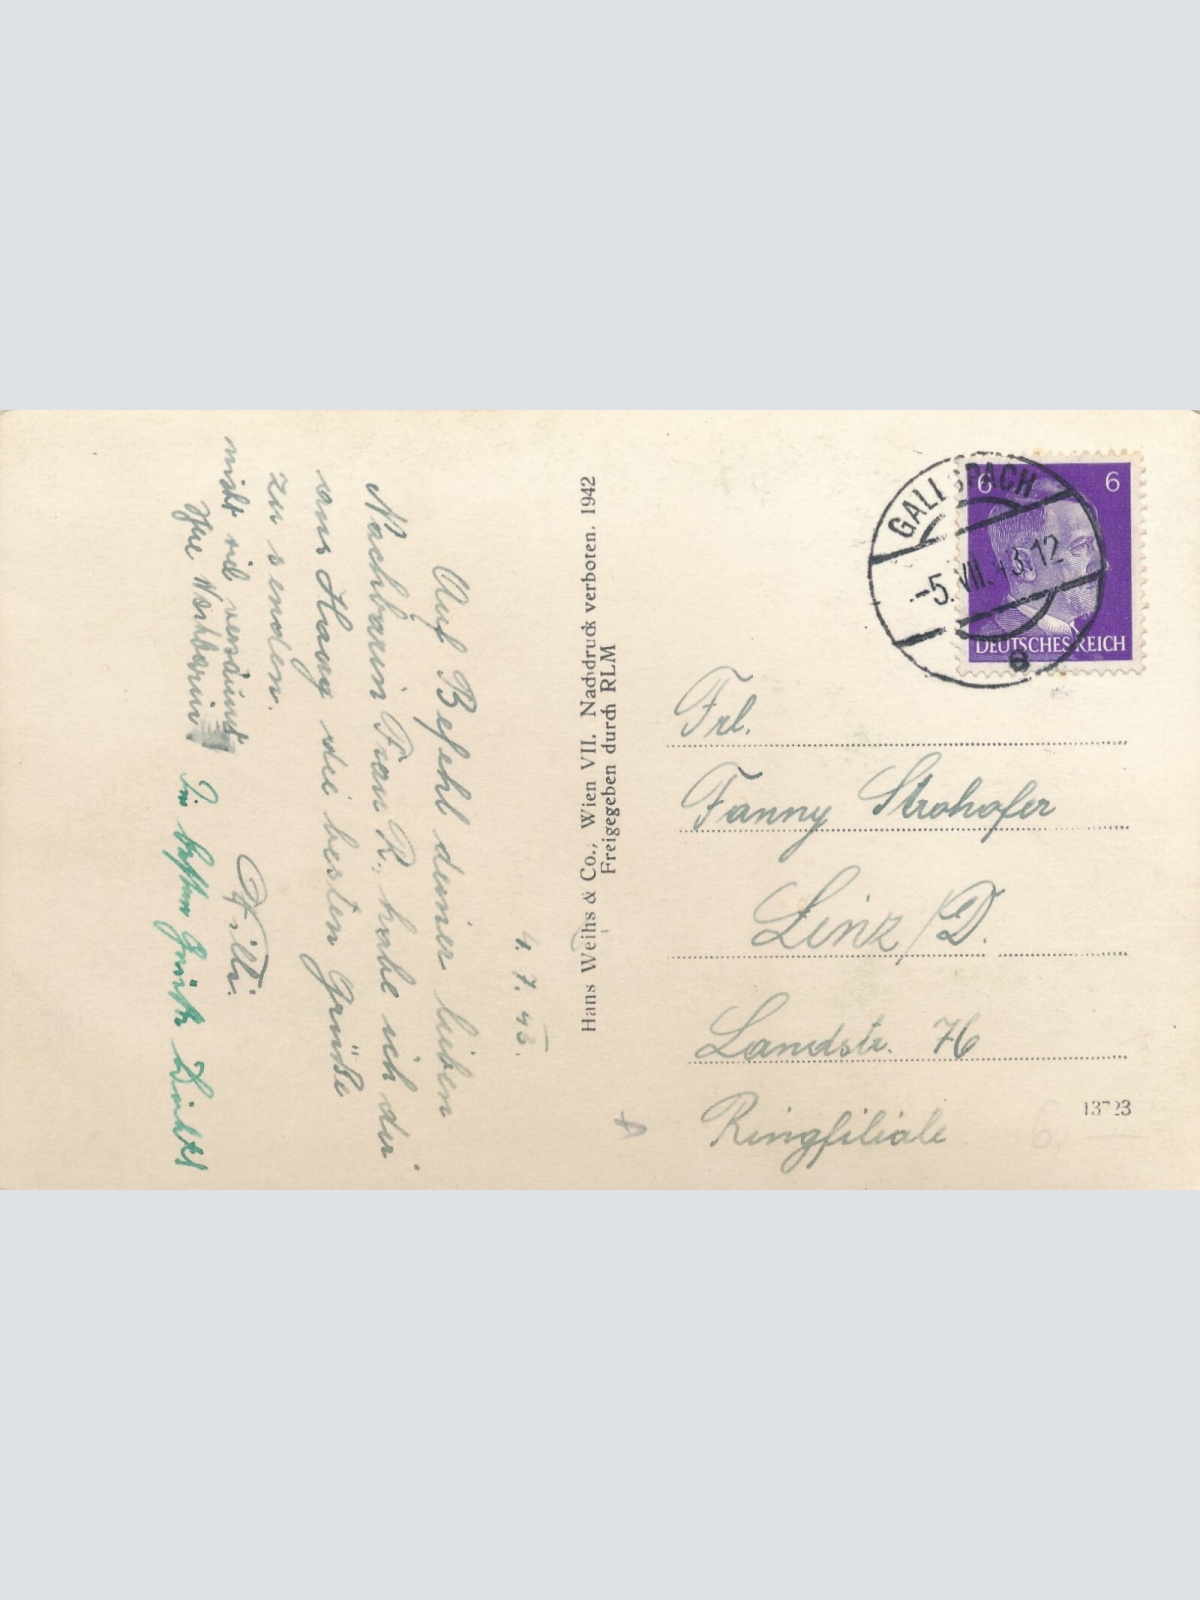 4. 7. 43.
Auf Befehl deiner lieben
Nachbarin Frau R., habe ich dir
aus Haag die besten Grüße
zu senden.
Willi.
nicht viel versäumt
Ihre Nachbarin
Die besten Grüße
Hans Weihs & Co., Wien VII. Nachdruck verboten. 1942
Freigegeben durch RLM
6 6
DEUTSCHES REICH
GALLSPACH
-5.VII.43.12
a
Frl.
Fanny Strohofer
Linz/D.
Landstr. 76
Ringfiliale
13723